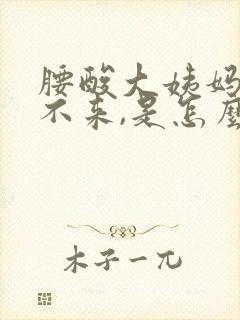 腰酸大姨妈
不来,是怎麽
木子一兀